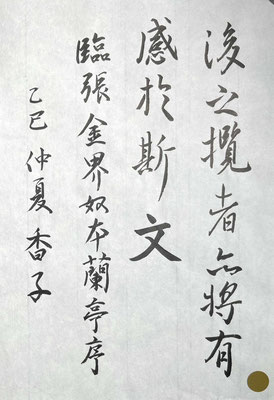 後之攬者亦將有
感於斯文
臨張金界奴本蘭亭序
乙巳 仲夏 香子